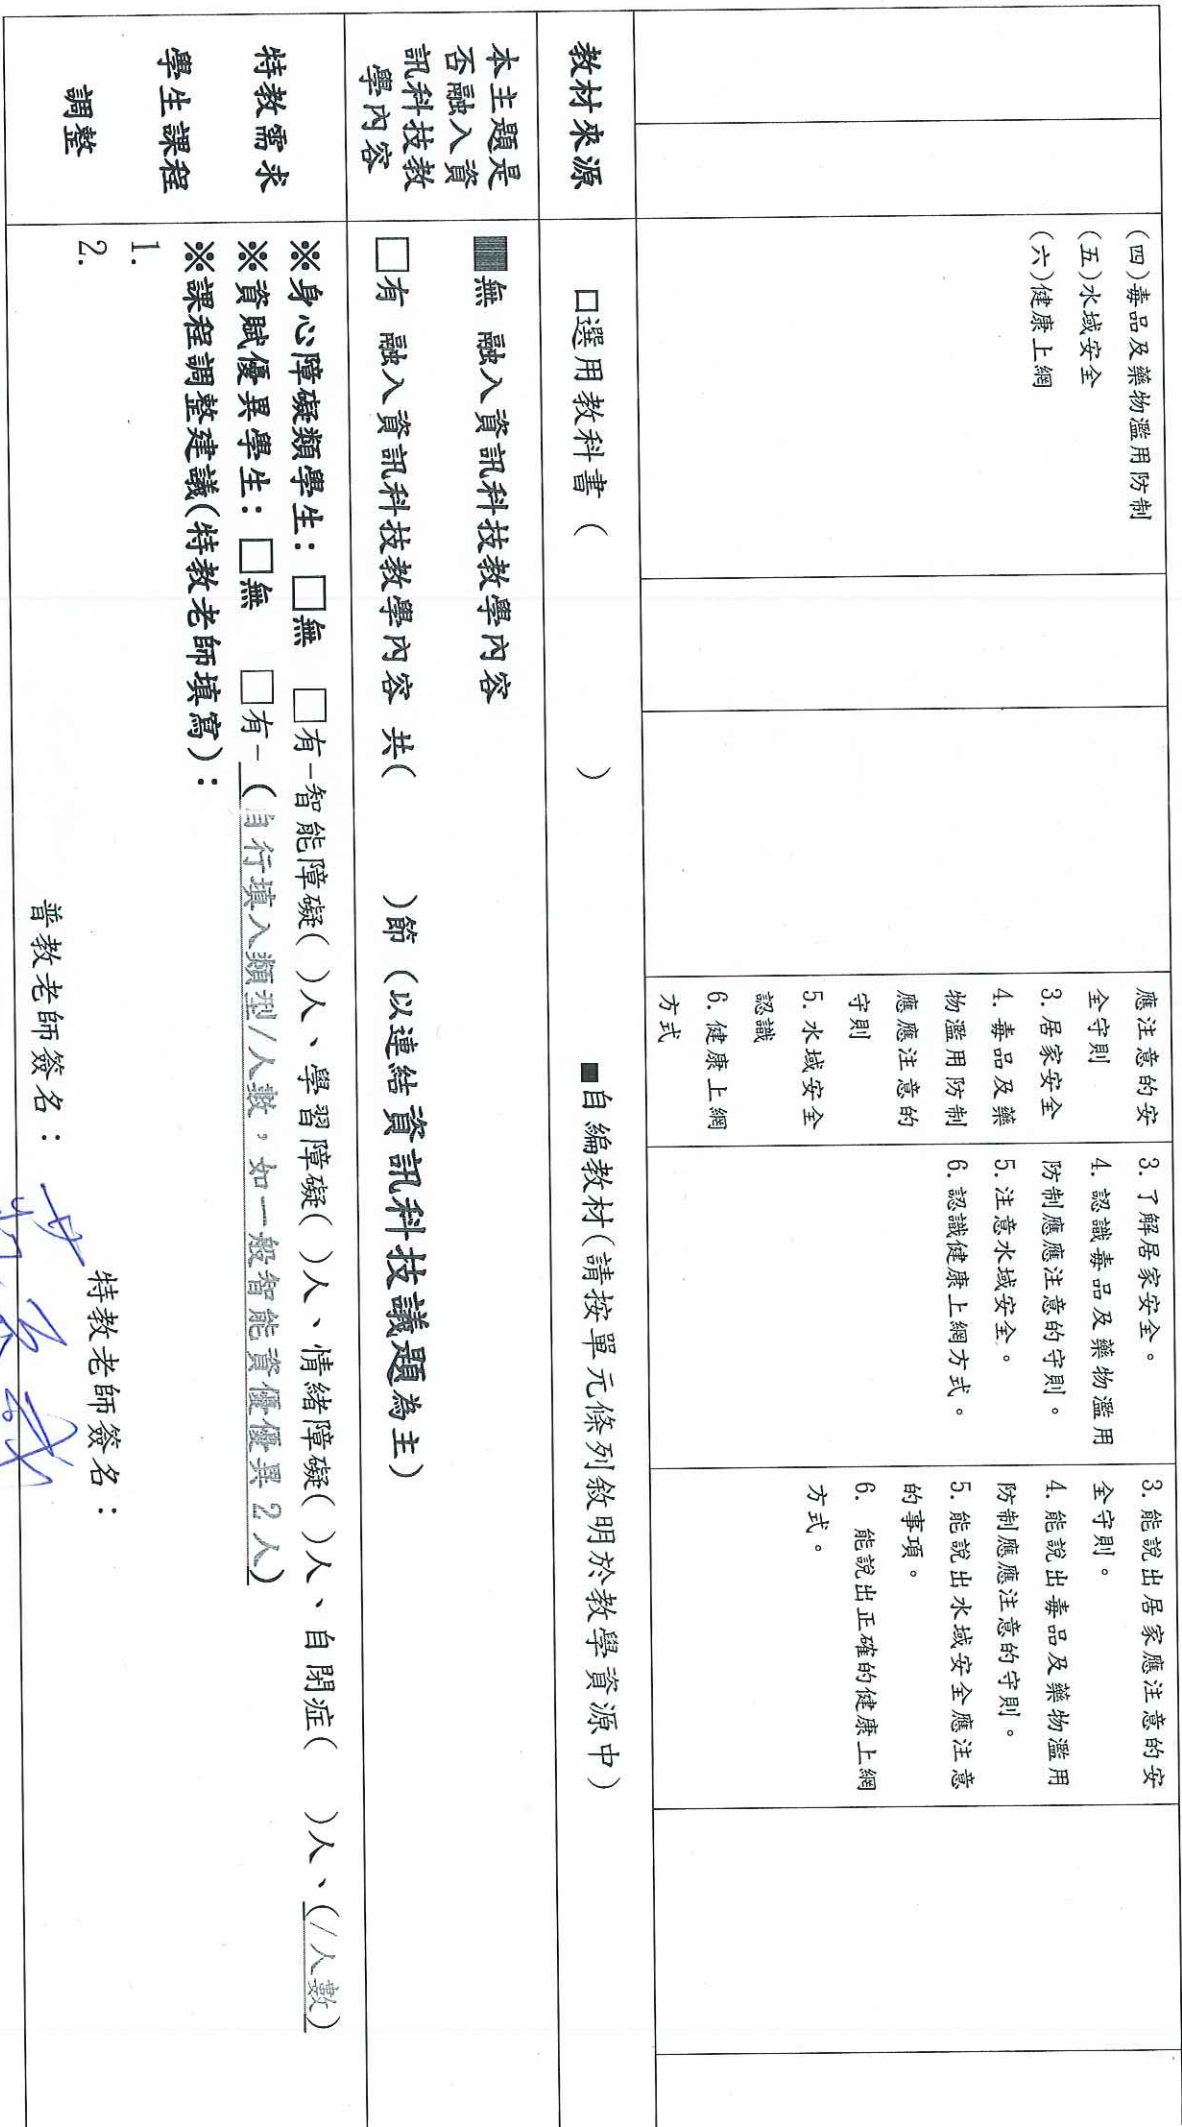 (四)毒品及藥物濫用防制
(五)水域安全
(六)健康上網
應注意的安
全守則
3.居家安全
4.毒品及藥
物濫用防制
應應注意的
守則
5.水域安全
認識
6.健康上網
方式
3.了解居家安全。
4.認識毒品及藥物濫用
防制應應注意的守則。
5.注意水域安全。
6.認識健康上網方式。
3.能說出居家應注意的安
全守則。
4.能說出毒品及藥物濫用
防制應應注意的守則。
5.能說出水域安全應注意
的事項。
6. 能說出正確的健康上網
方式。
教材來源
□選用教科書 ( )
■自編教材(請按單元條列敘明於教學資源中)
本主題是
否融入資
訊科技教
學內容
■無 融入資訊科技教學內容
□有 融入資訊科技教學內容 共( )節 (以連結資訊科技議題為主)
特教需求
學生課程
調整
※身心障礙類學生:□無 □有-智能障礙( )人、學習障礙( )人、情緒障礙( )人、自閉症( )人、(/人數)
※資賦優異學生:□無 □有-(自行填入類型/人數,如一般智能資優優異2人)
※課程調整建議(特教老師填寫):
1.
2.
特教老師簽名:
普教老師簽名: